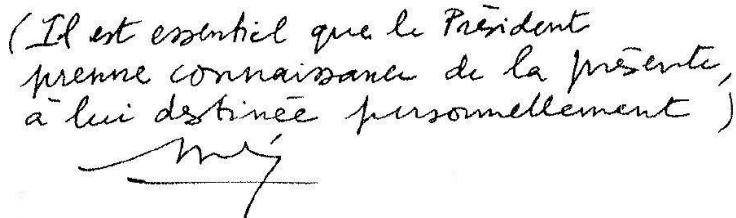 (Il est essentiel que le Président
prenne connaissance de la présente,
à lui destinée personnellement)